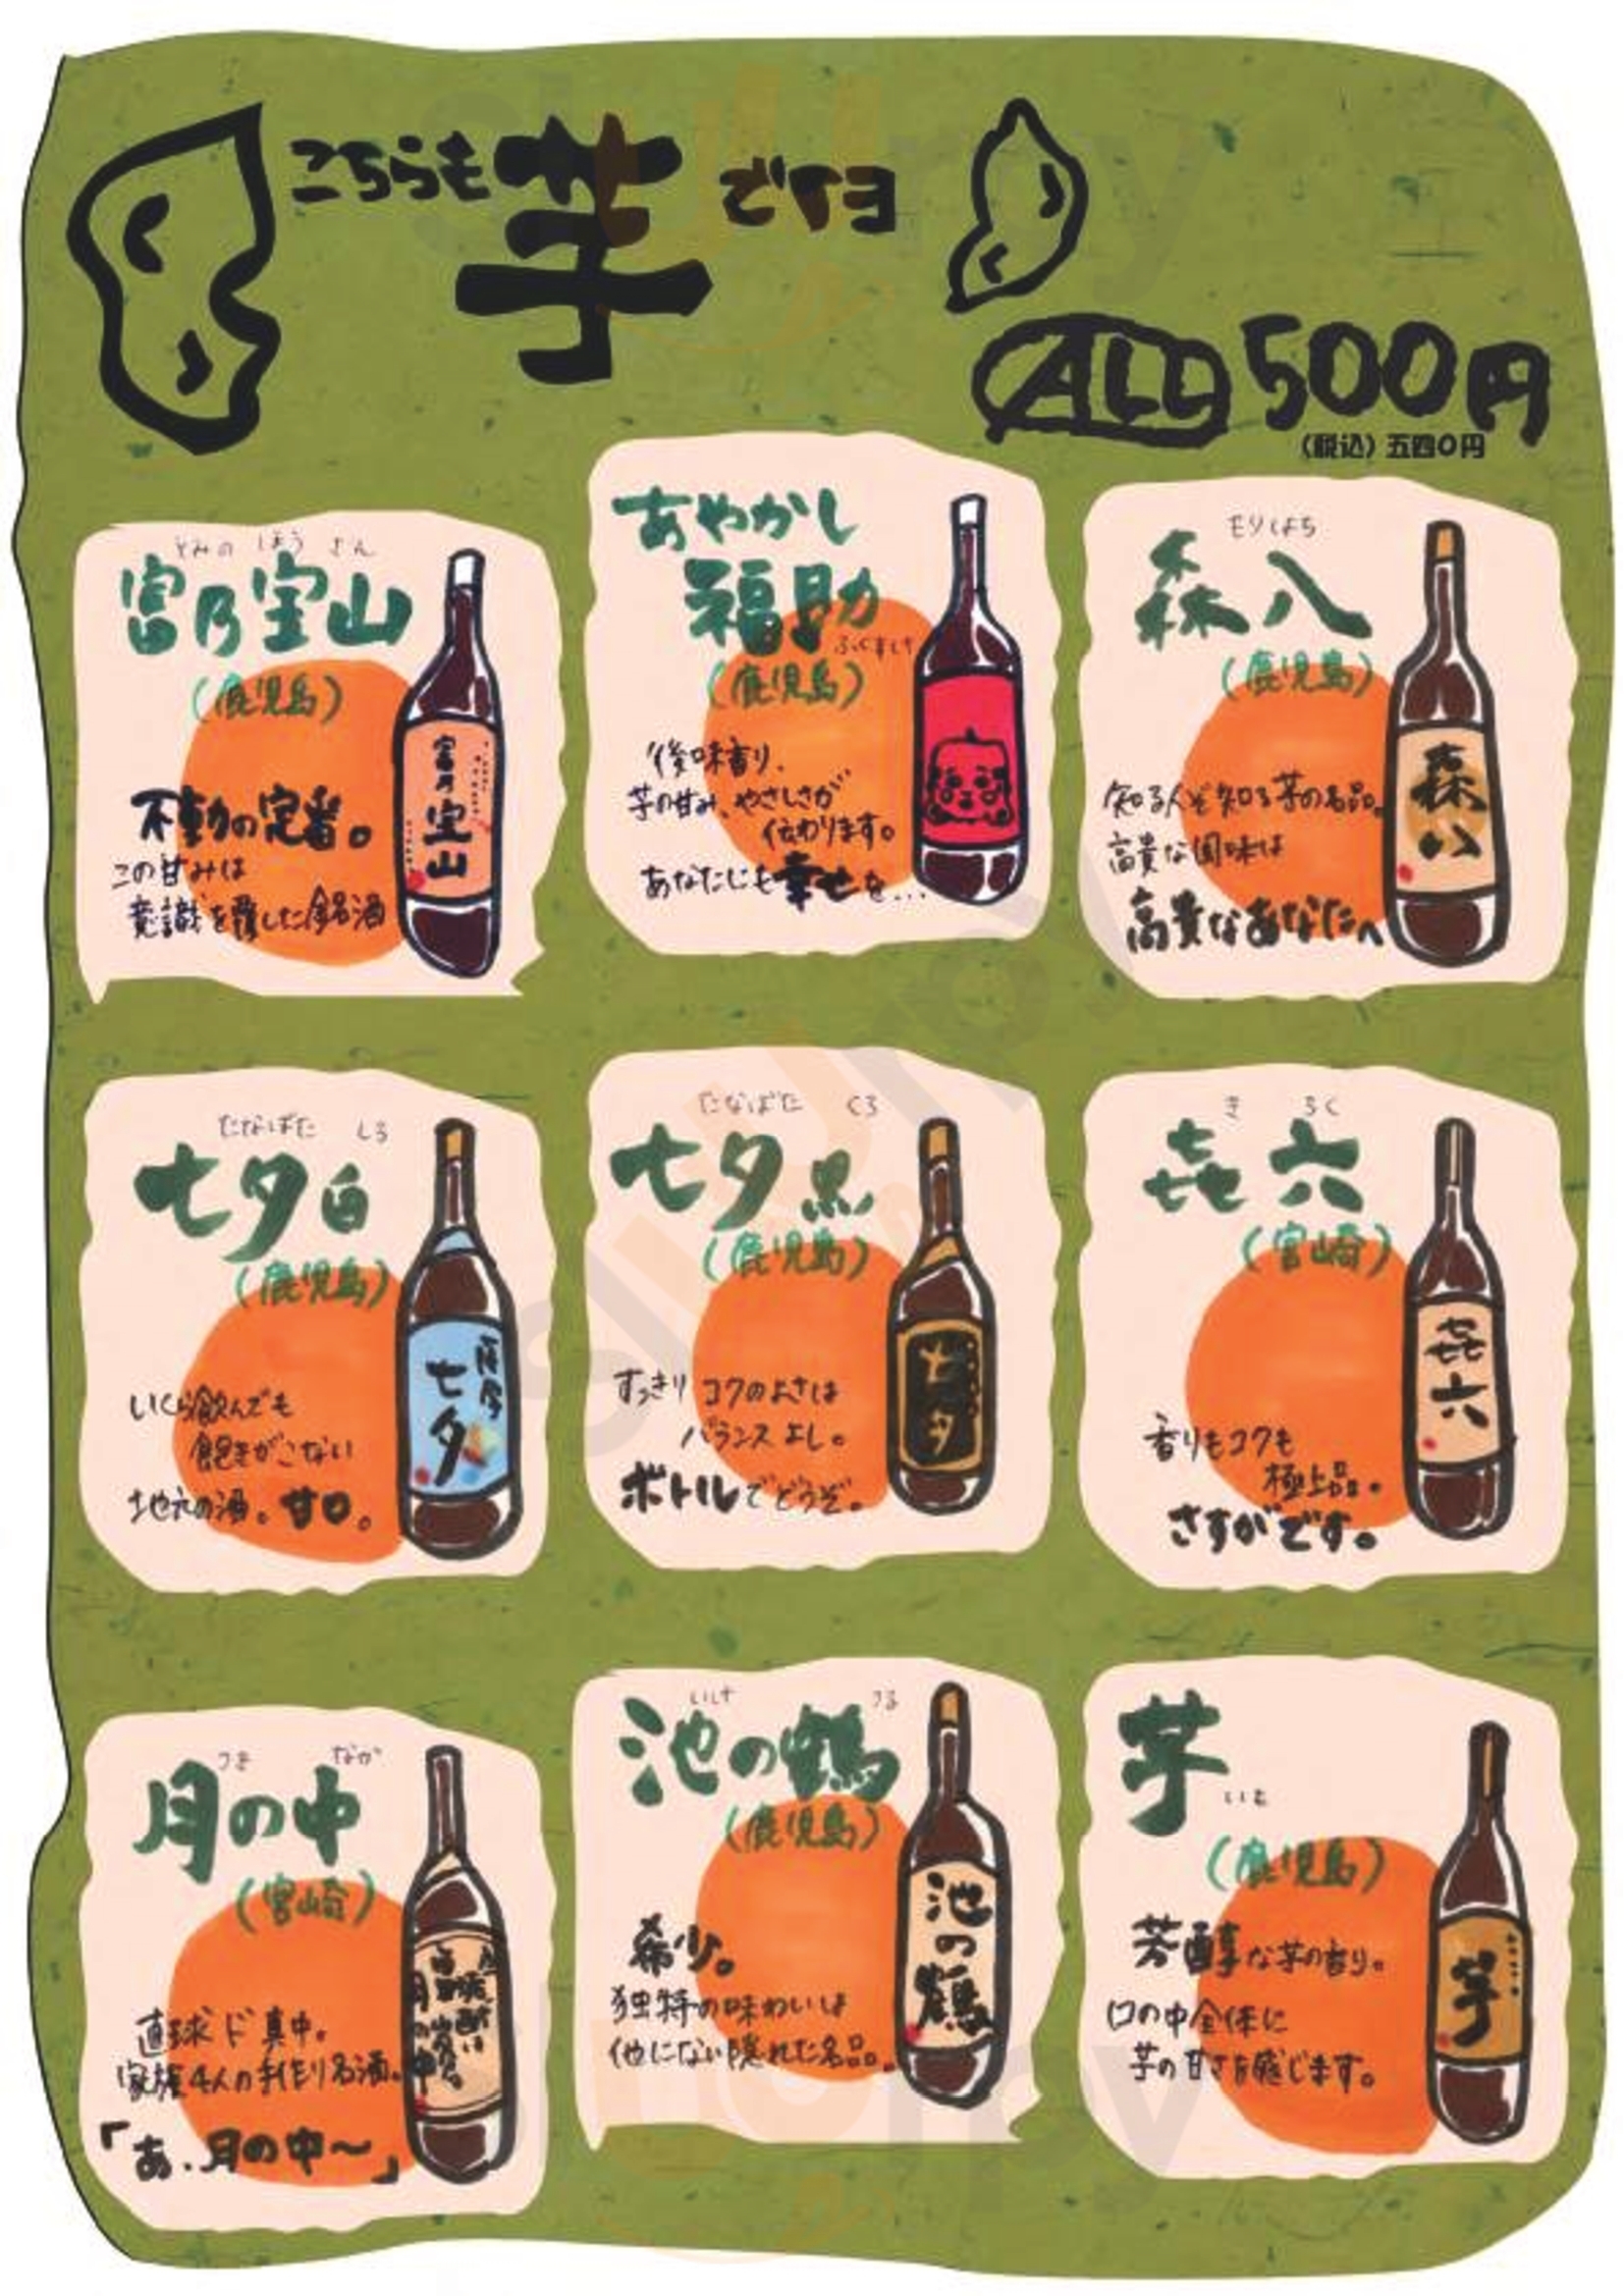 こちらも芋ですヨ
ALL 500円
(税込) 五四〇円
とみの ほう ざん
富乃宝山
(鹿児島)
不動の定番。
この甘みは
意識を覆した銘酒
富乃宝山
あやかし
福助
ふくすけ
(鹿児島)
後味香り、
芋の甘み、やさしさが
伝わります。
あなたにも幸せを...
もりはち
森八
(鹿児島)
知る人ぞ知る芋の名品。
高貴な風味は
高貴なあなたへ
森八
たなばた しろ
七夕白
(鹿児島)
いくら飲んでも
飽きがこない
地元の酒。甘口。
七夕
たなばた くろ
七夕黒
(鹿児島)
すっきりコクのよさは
バランスよし。
ボトルでどうぞ。
七夕
き ろく
㐂六
(宮崎)
香りもコクも
極上品。
さすがです。
㐂六
つき なか
月の中
(宮崎)
直球ド真中。
家族4人の手作り名酒。
「あ、月の中〜」
月の中
いけ つる
池の鶴
(鹿児島)
希少。
独特の味わいは
他にない隠れた名品。
池の鶴
芋
いも
(鹿児島)
芳醇な芋の香り。
口の中全体に
芋の甘さを感じます。
芋
slurpy
slurpy
slurpy